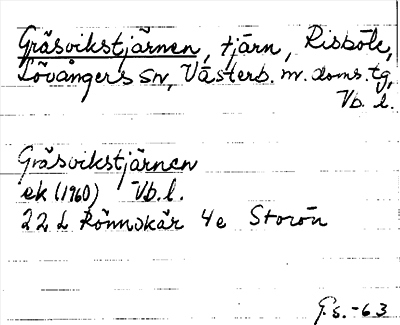 Gräsvikstjärnen, tjärn, Risböle,
Lövångers sn, Västerb. m. doms. tg,
Vb. l.
Gräsvikstjärnen
ek (1960) Vb. l.
22 L Rönnskär 4e Storön
G.S. -63